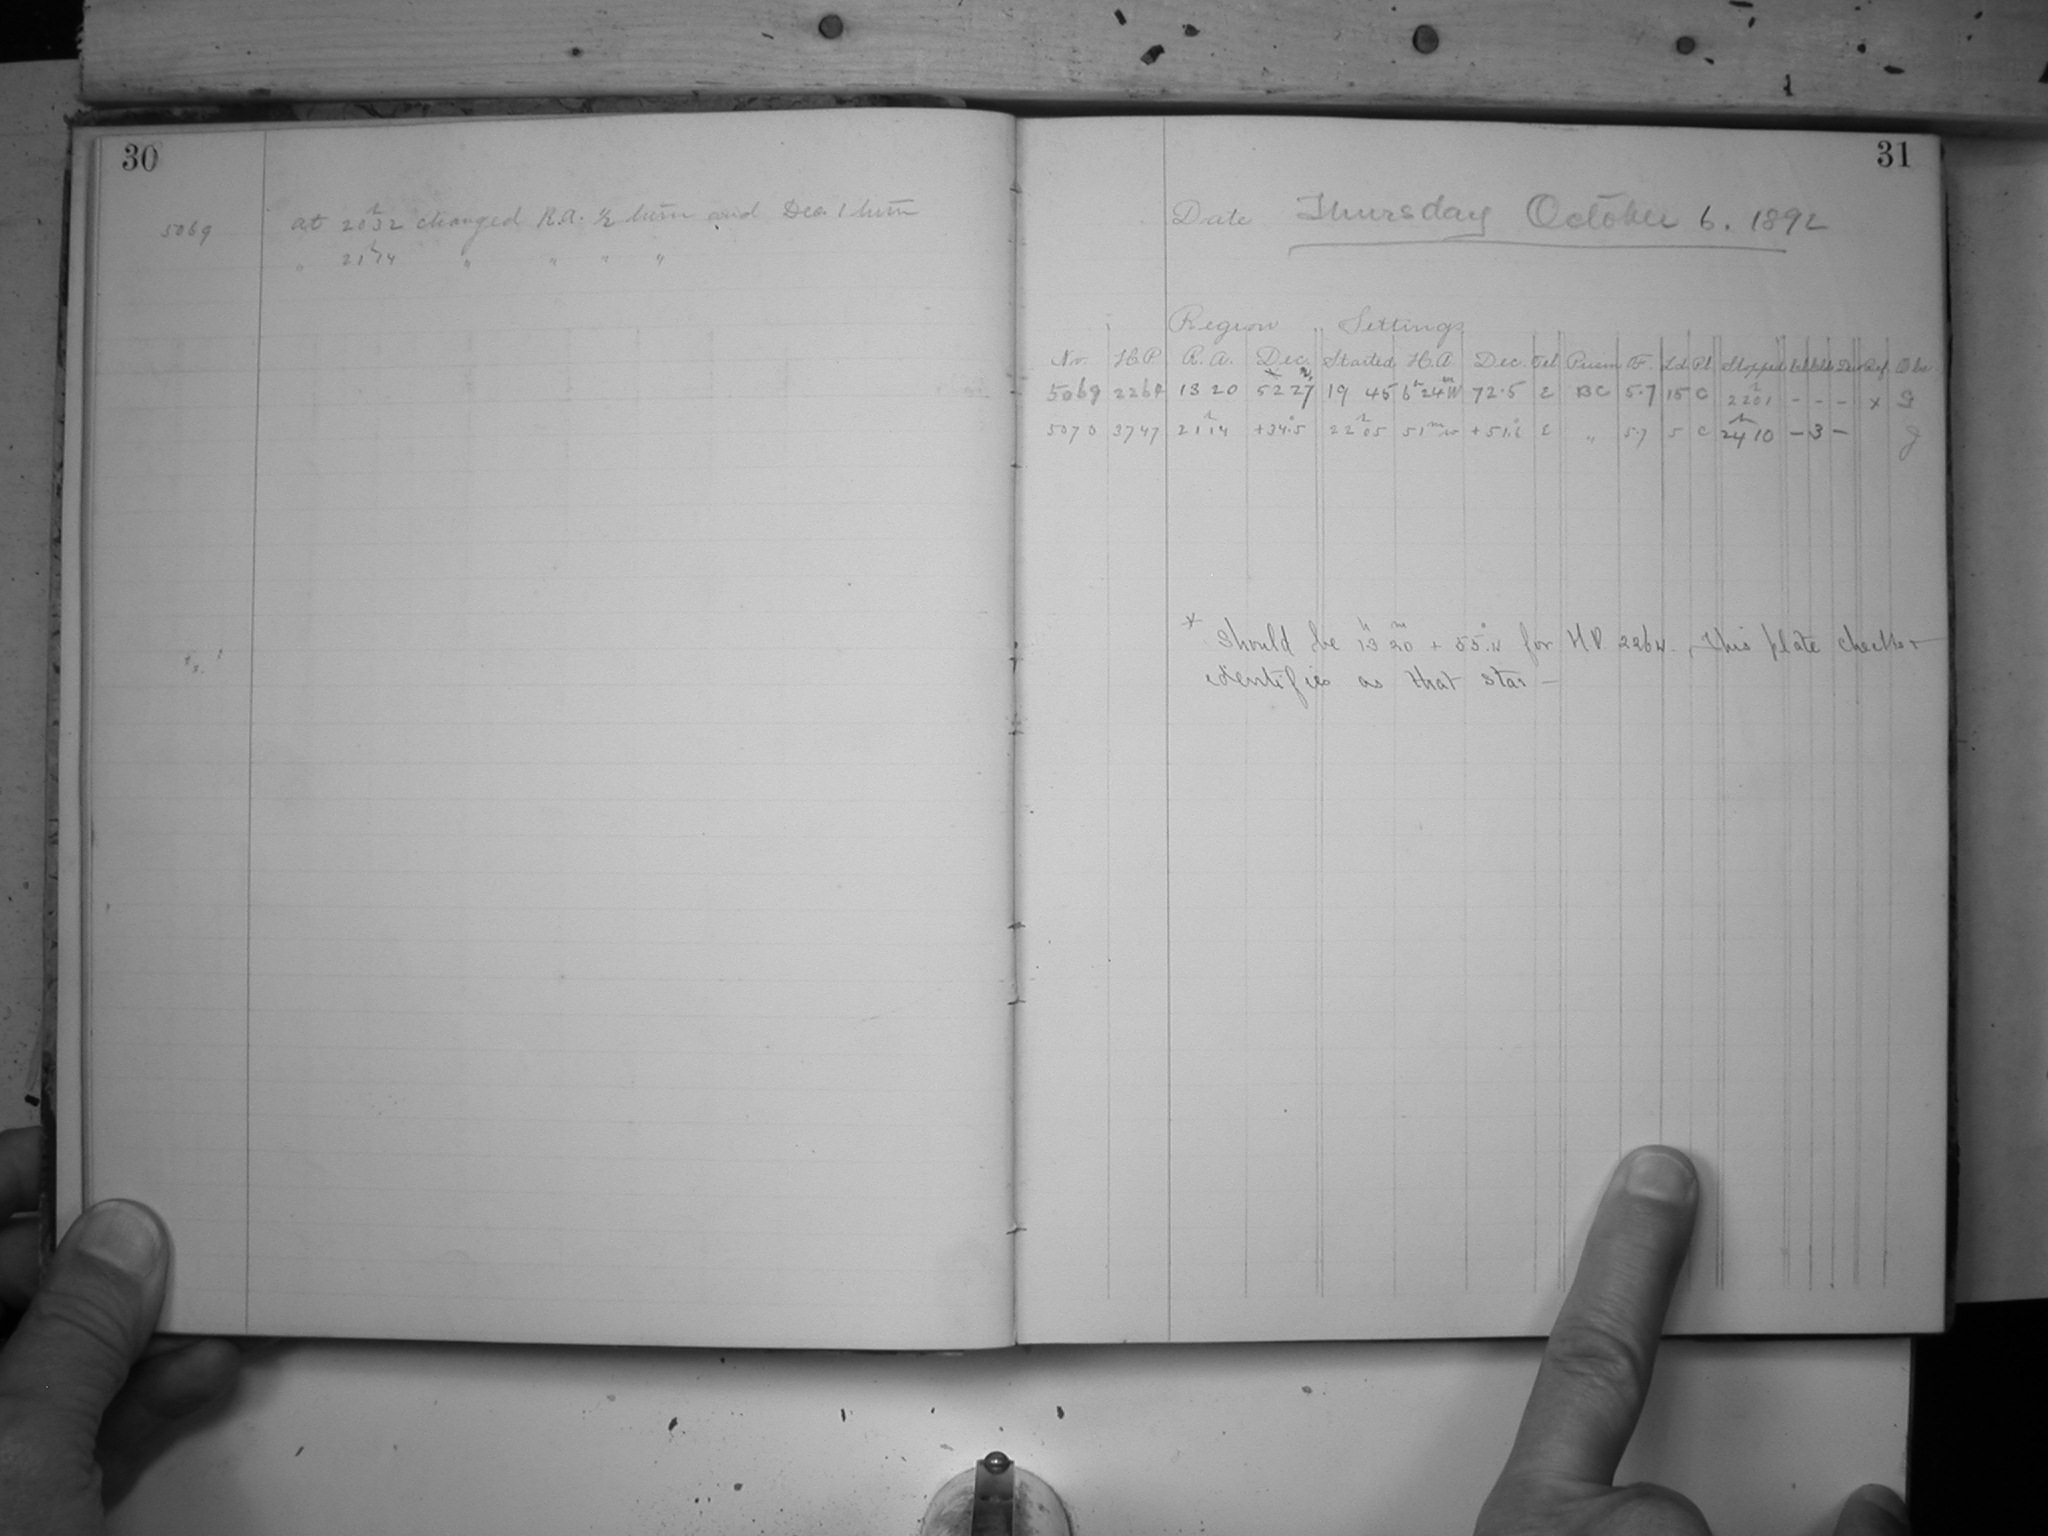 30
5069 at 20h32 changed R.A. ½ turn and Dec. 1 turn
" 21h14 " " " "
31
Date Thursday October 6. 1892
Region Settings
No. H.P. R.A. Dec. Started H.A. Dec. Tel Prism F. Ld Pl Stopped Ref Obs
5069 2264 13 20 52 27 19 45 6h24mW 72.5 E BC 5.7 15 C 22h01 - - - x
5070 3747 21h14 +34°.5 22h05 51mw +51.6 E " 5.7 5 C 24h10 - 3 -
x Should be 13h 20m + 55°.4 for H.P. 2264. This plate checks +
identifies as that star -